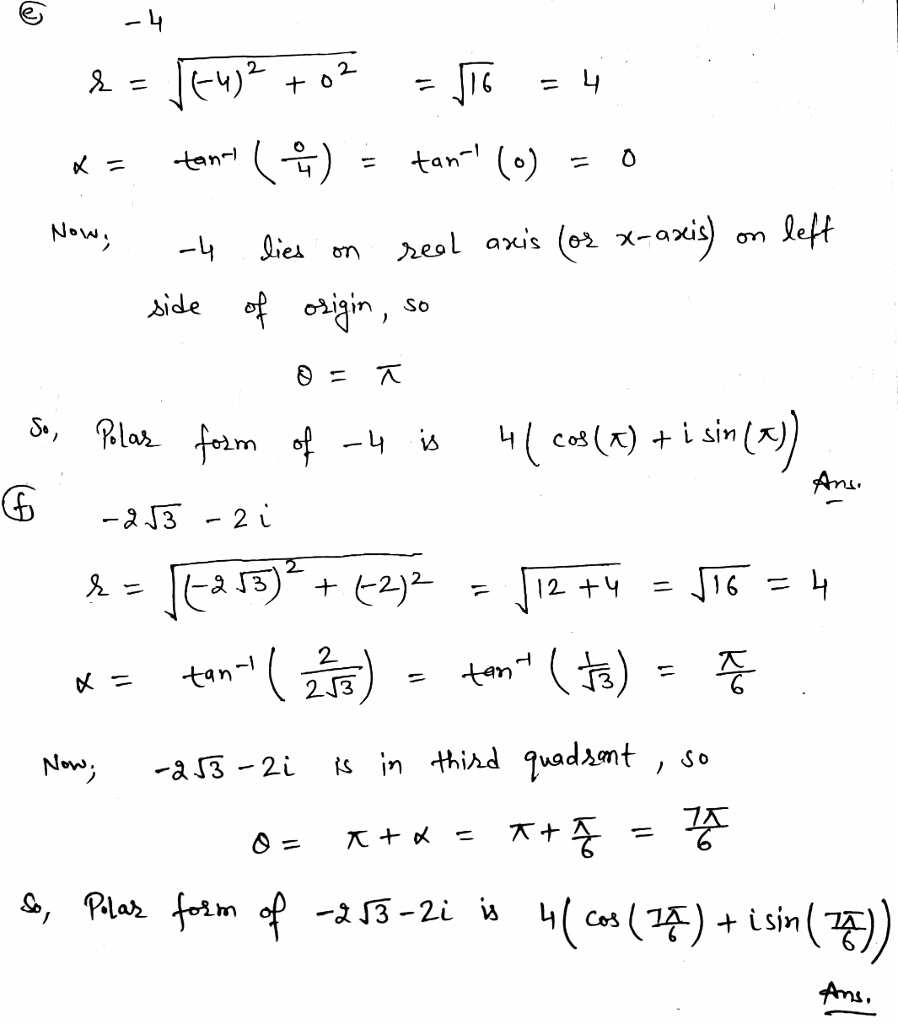 (e) -4
r = √((-4)² + 0²) = √16 = 4
α = tan⁻¹ (0/4) = tan⁻¹ (0) = 0
Now; -4 lies on real axis (or x-axis) on left
side of origin, so
θ = π
So, Polar form of -4 is 4( cos(π) + i sin(π))
Ans.
(f) -2√3 - 2i
r = √((-2√3)² + (-2)²) = √(12+4) = √16 = 4
α = tan⁻¹ (2/(2√3)) = tan⁻¹ (1/√3) = π/6
Now; -2√3 - 2i is in third quadrant, so
θ = π + α = π + π/6 = 7π/6
So, Polar form of -2√3 - 2i is 4( cos(7π/6) + i sin(7π/6))
Ans.